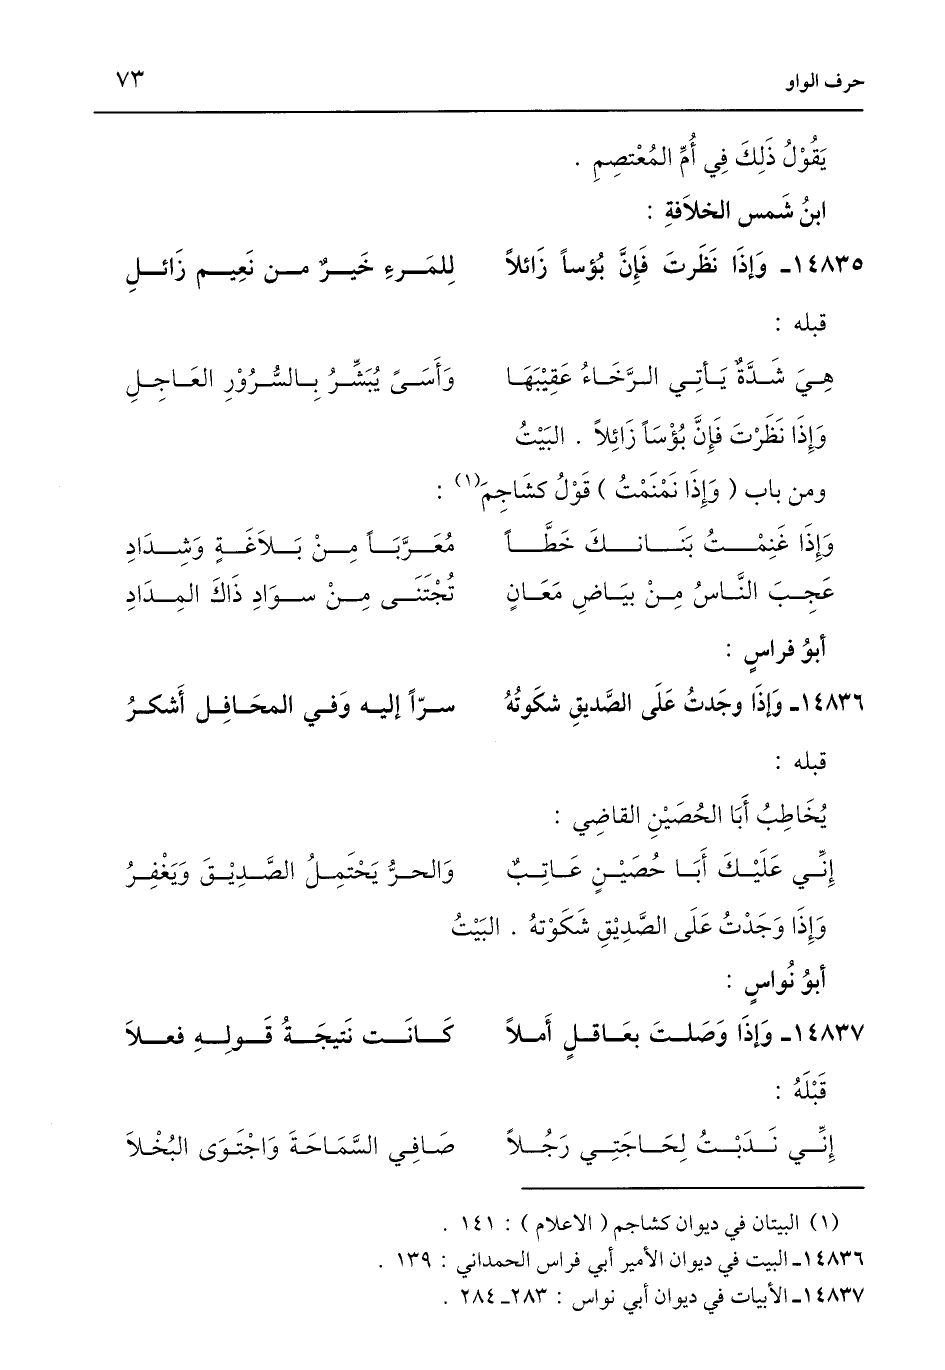 حرف الواو ٧٣
يَقُوْلُ ذَلِكَ فِي أُمِّ المُعْتصِمِ .
ابنُ شَمسِ الخلاَفةِ :
١٤٨٣٥ـ وَإذَا نَظَرتَ فَإنَّ بُؤساً زَائلاً للِمَرءِ خَيرٌ مـن نَعِيـم زَائـلِ
قبله :
هِيَ شَدَّةٌ يَأتِي الرَّخَاءُ عَقِيْبَهَا وَأَسَىً يُبَشِّرُ بِالسُّرُوْرِ العَاجِلِ
وَإذَا نَظَرْتَ فَإنَّ بُؤْسَاً زَائِلاً . البَيْتُ
ومن باب ( وَإذَا نَمْنَمْتُ ) قَوْلُ كشَاجِمَ(١) :
وَإذَا غَنِمْتُ بَنَانكَ خَطَّاً مُعَرَّبَاً مِنْ بَلاَغَةٍ وَشِدَادِ
عَجِبَ النَّاسُ مِنْ بيَاضِ مَعَانٍ تُجْتَنَى مِنْ سوَادِ ذَاكَ المِدَادِ
أبوُ فراسٍ :
١٤٨٣٦ـ وَإذَا وجَدتُ عَلَى الصَّديقِ شكَوتُهُ سرّاً إليه وَفي المحَافِل أَشكرُ
قبله :
يُخَاطِبُ أَبَا الحُصَيْنِ القاضِي :
إنِّي عَلَيْكَ أَبَا حُصَيْنٍ عَاتِبٌ وَالحرُّ يَحْتَمِلُ الصَّدِيْقَ وَيَغْفِرُ
وَإذَا وَجَدْتُ عَلَى الصَّدِيْقِ شَكَوْتهُ . البَيْتُ
أبوُ نُواسٍ :
١٤٨٣٧ـ وَإذَا وَصَلتَ بعَاقلٍ أملاً كَانَت نَتيجَةُ قَولِهِ فعلاَ
قَبْلَهُ :
إنِّي نَدَبْتُ لحَاجَتِي رَجُلاً صَافِي السَّمَاحَةَ وَاجْتَوَى البُخْلاَ
(١) البيتان في ديوان كشاجم ( الاعلام ) : ١٤١ .
١٤٨٣٦ـ البيت في ديوان الأمير أبي فراس الحمداني : ١٣٩ .
١٤٨٣٧ـ الأبيات في ديوان أبي نواس : ٢٨٣ـ ٢٨٤ .